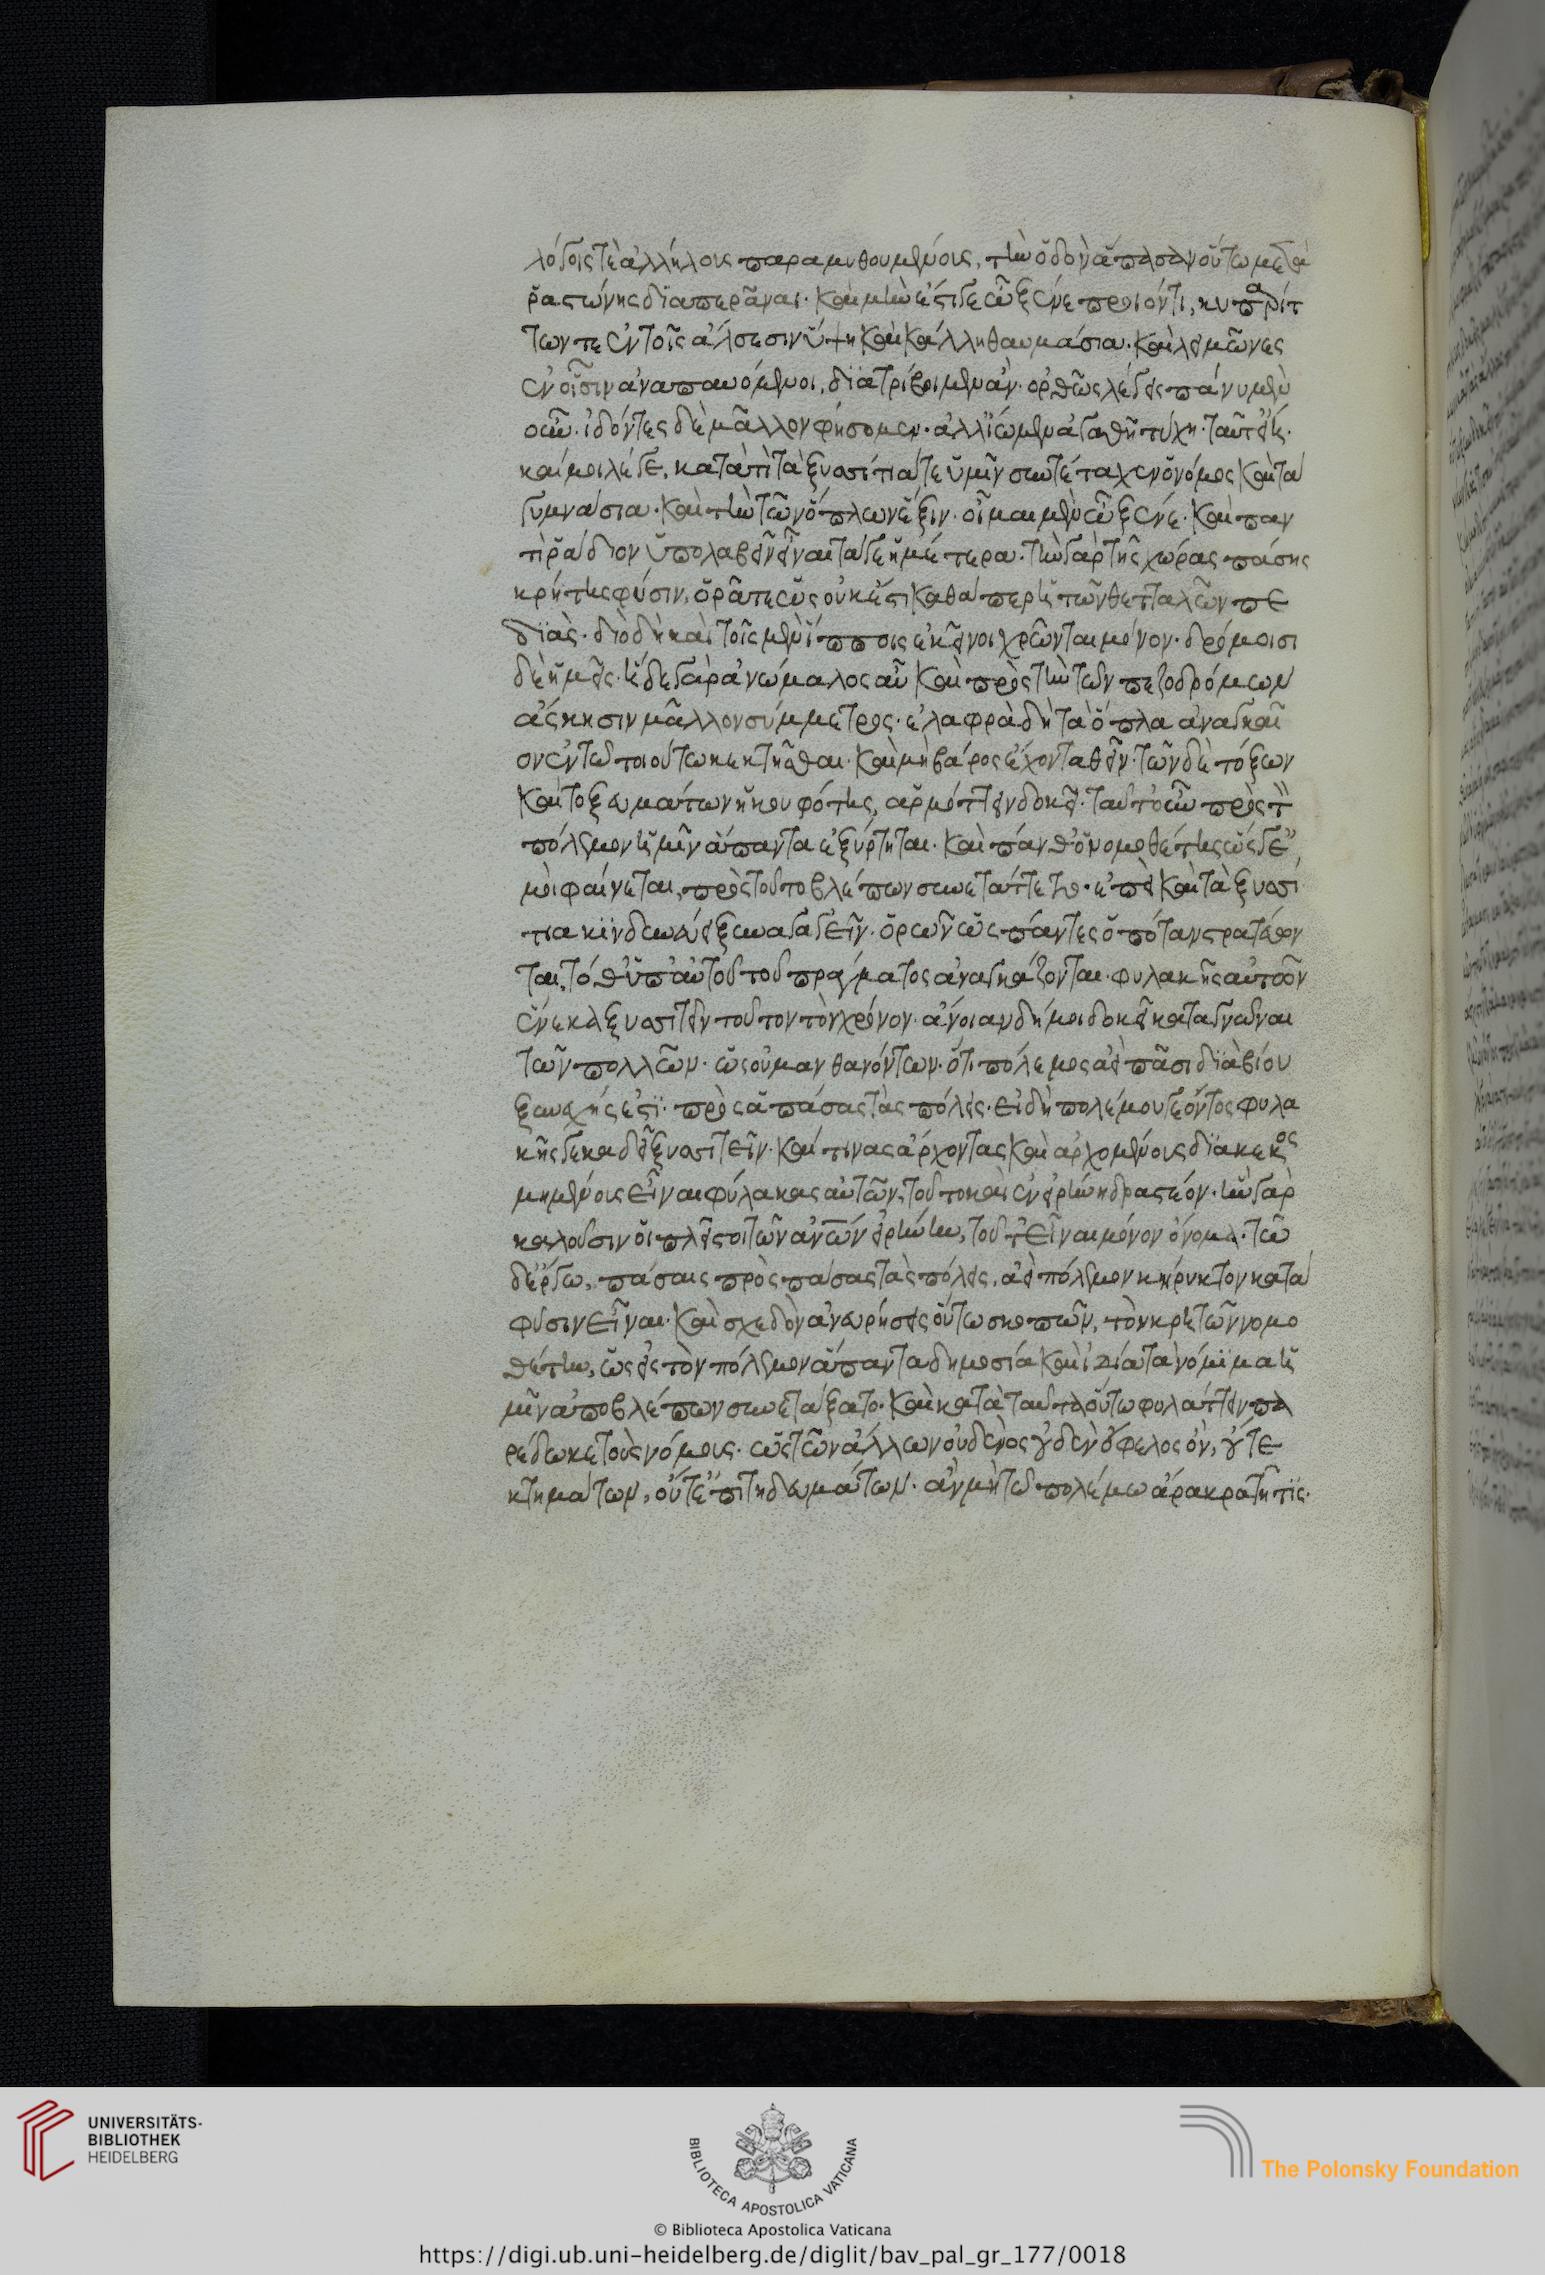 λόγοις τὲ ἀλλήλους παραμυθουμένους, τὴν ὁδὸν ἅπασαν οὕτω μετὰ
ῥαστώνης διαπερᾶναι. καὶ μὴν ἔστι γε ὦ ξένε προϊόντι, κυπαρίτ
των τε ἐν τοῖς ἄλσεσιν ὕψη καὶ κάλλη θαυμάσια. καὶ λειμῶνες
ἐν οἷσιν ἀναπαυόμενοι, διατρίβοιμεν ἄν. ὀρθῶς λέγεις πάνυ μὲν
οὖν. ἰδόντες δὲ μᾶλλον φήσομεν. ἀλλ' ἴωμεν ἀγαθῇ τύχῃ. ταῦτ' εἴη.
καί μοι λέγε, κατὰ τὶ τὰ ξυσσίτιά τε ὑμῖν συντέταχεν ὁ νόμος καὶ τὰ
γυμνάσια. καὶ τὴν τῶν ὅπλων ἕξιν. οἶμαι μὲν ὦ ξένε. καὶ παν
τὶ ῥᾴδιον ὑπολαβεῖν εἶναι τά γε ἡμέτερα. τὴν γὰρ τῆς χώρας πάσης
κρήτης φύσιν, ὁρᾶτε ὡς οὐκ ἔστι καθάπερ ἡ τῶν θετταλῶν πε
διὰς. διὸ δὴ καὶ τοῖς μὲν ἵπποις ἐκεῖνοι χρῶνται μόνον. δρόμοισι
δὲ ἡμεῖς. ἥδε γὰρ ἀνώμαλος αὖ καὶ πρὸς τὴν τῶν πεζοδρόμων
ἄσκησιν μᾶλλον σύμμετρος. ἐλαφρὰ δὴ τὰ ὅπλα ἀναγκαῖ
ον ἐν τῶ τοιούτω κεκτῆσθαι. καὶ μὴ βάρος ἔχοντα θεῖν. τῶν δὲ τόξων
καὶ τοξευμάτων ἡ κουφότης, ἁρμόττειν δοκεῖ. ταῦτ' οὖν πρὸς τὸν
πόλεμον ἡμῖν ἅπαντα ἐξήρτηται. καὶ πάνθ' ὁ νομοθέτης ὥς γε
μοι φαίνεται, πρὸς τοῦτο βλέπων συνετάττετο. ἐπεὶ καὶ τὰ ξυσσί
τια κινδυνεύει ξυναγαγεῖν. ὁρῶν ὡς πάντες ὁπόταν στρατεύων
ται, τόθ' ὑπ' αὐτοῦ τοῦ πράγματος ἀναγκάζονται. φυλακῆς αὐτῶν
ἕνεκα ξυσσιτεῖν τοῦτον τὸν χρόνον. ἄνοιαν δή μοι δοκεῖ καταγνῶναι
τῶν πολλῶν. ὡς οὐ μανθανόντων. ὅτι πόλεμος ἀεὶ πᾶσι διὰ βίου
ξυνεχής ἐστι. πρὸς ἁπάσας τὰς πόλεις. εἰ δὴ πολέμου γε ὄντος φυλα
κῆς ἕνεκα δεῖ ξυσσιτεῖν. καί τινας ἄρχοντας καὶ ἀρχομένους διακεκοσ
μημένους εἶναι φύλακας αὐτῶν, τοῦτο καὶ ἐν εἰρήνη δραστέον. ἣν γὰρ
καλοῦσιν οἱ πλεῖστοι τῶν ἀνων εἰρήνην, τοῦτ' εἶναι μόνον ὄνομα. τῶ
δ' ἔργω, πάσαις πρὸς πάσας τὰς πόλεις, ἀεὶ πόλεμον κήρυκτον κατὰ
φύσιν εἶναι. καὶ σχεδὸν ἀνευρήσεις οὕτω σκοπῶν, τὸν κρητῶν νομο
θέτην, ὡς εἰς τὸν πόλεμον ἅπαντα δημοσία καὶ ἰδία τὰ νόμιμα ἡ
μῖν ἀποβλέπων συνετάξατο. καὶ κατὰ ταῦτα οὕτω φυλάττειν πα
ρέδωκε τοὺς νόμους. ὡς τῶν ἄλλων οὐδενὸς οὐδὲν ὄφελος ὂν, οὔτε
κτημάτων, οὔτ' ἐπιτηδευμάτων. ἂν μὴ τῶ πολέμω ἄρα κρατῆ τις.
UNIVERSITÄTS-
BIBLIOTHEK
HEIDELBERG
BIBLIOTECA APOSTOLICA VATICANA
The Polonsky Foundation
© Biblioteca Apostolica Vaticana
https://digi.ub.uni-heidelberg.de/diglit/bav_pal_gr_177/0018